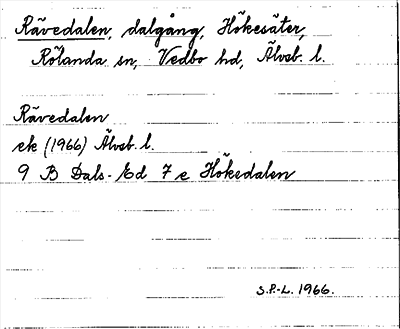 Rävedalen, dalgång, Hökesäter,
Rölanda sn, Vedbo hd, Älvsb. l.
Rävedalen
ek (1966) Älvsb. l.
9 B Dals-Ed 7 e Hökedalen
S.P-L. 1966.